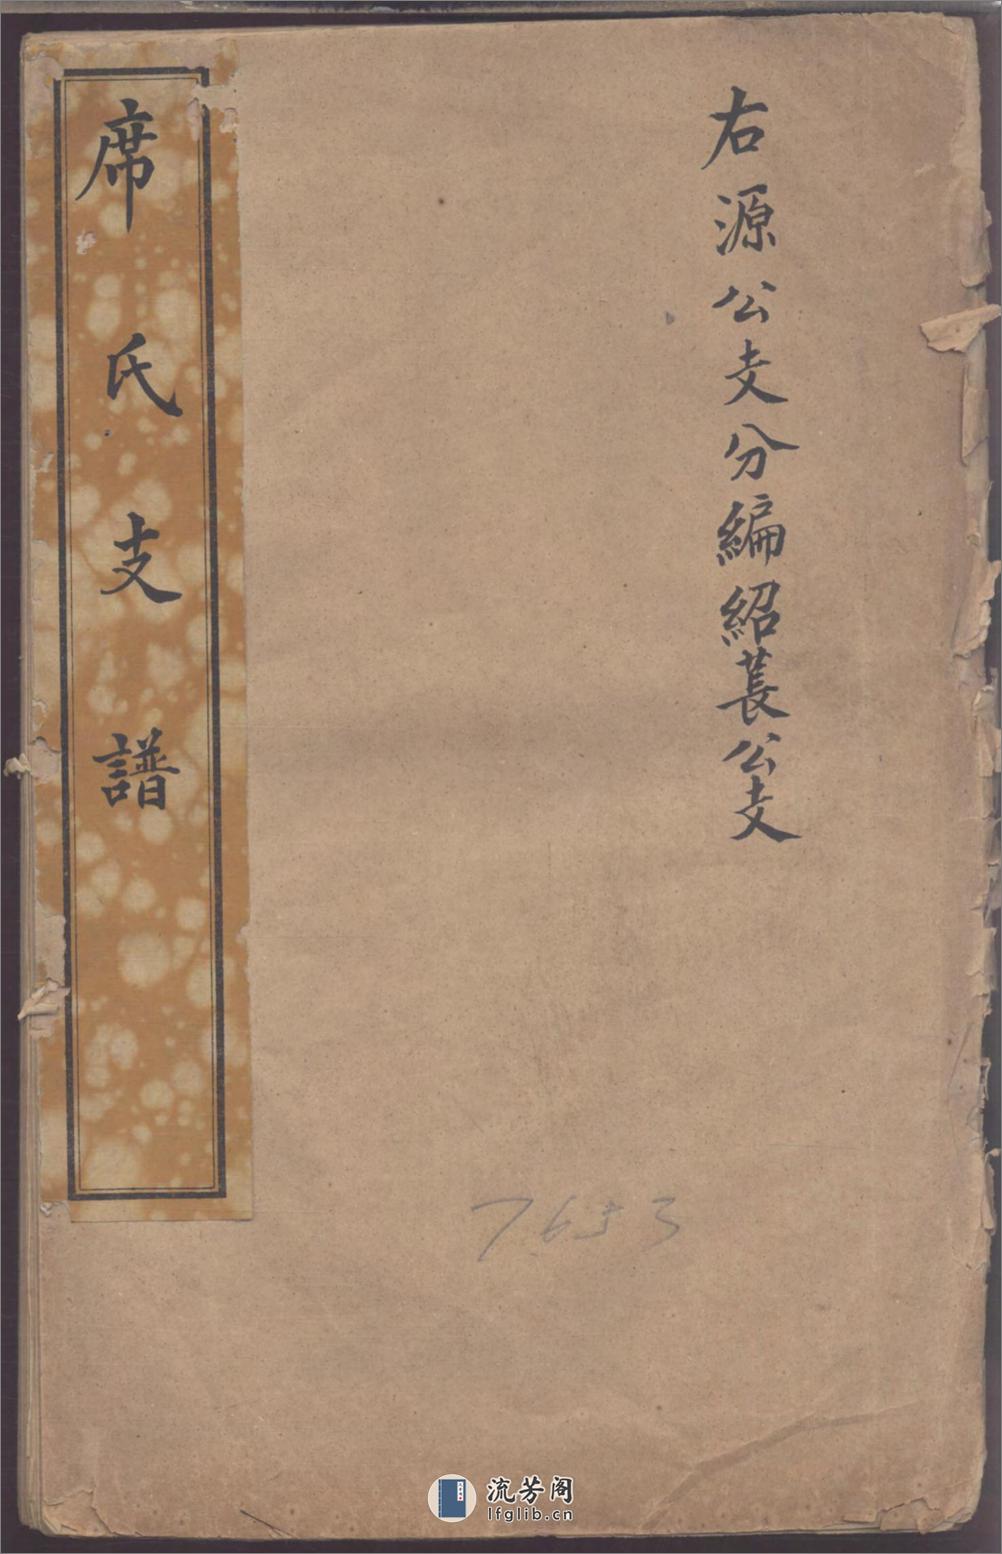 右源公支分編紹萇公支
席氏支譜
7653
流芳阁
lfglib.cn